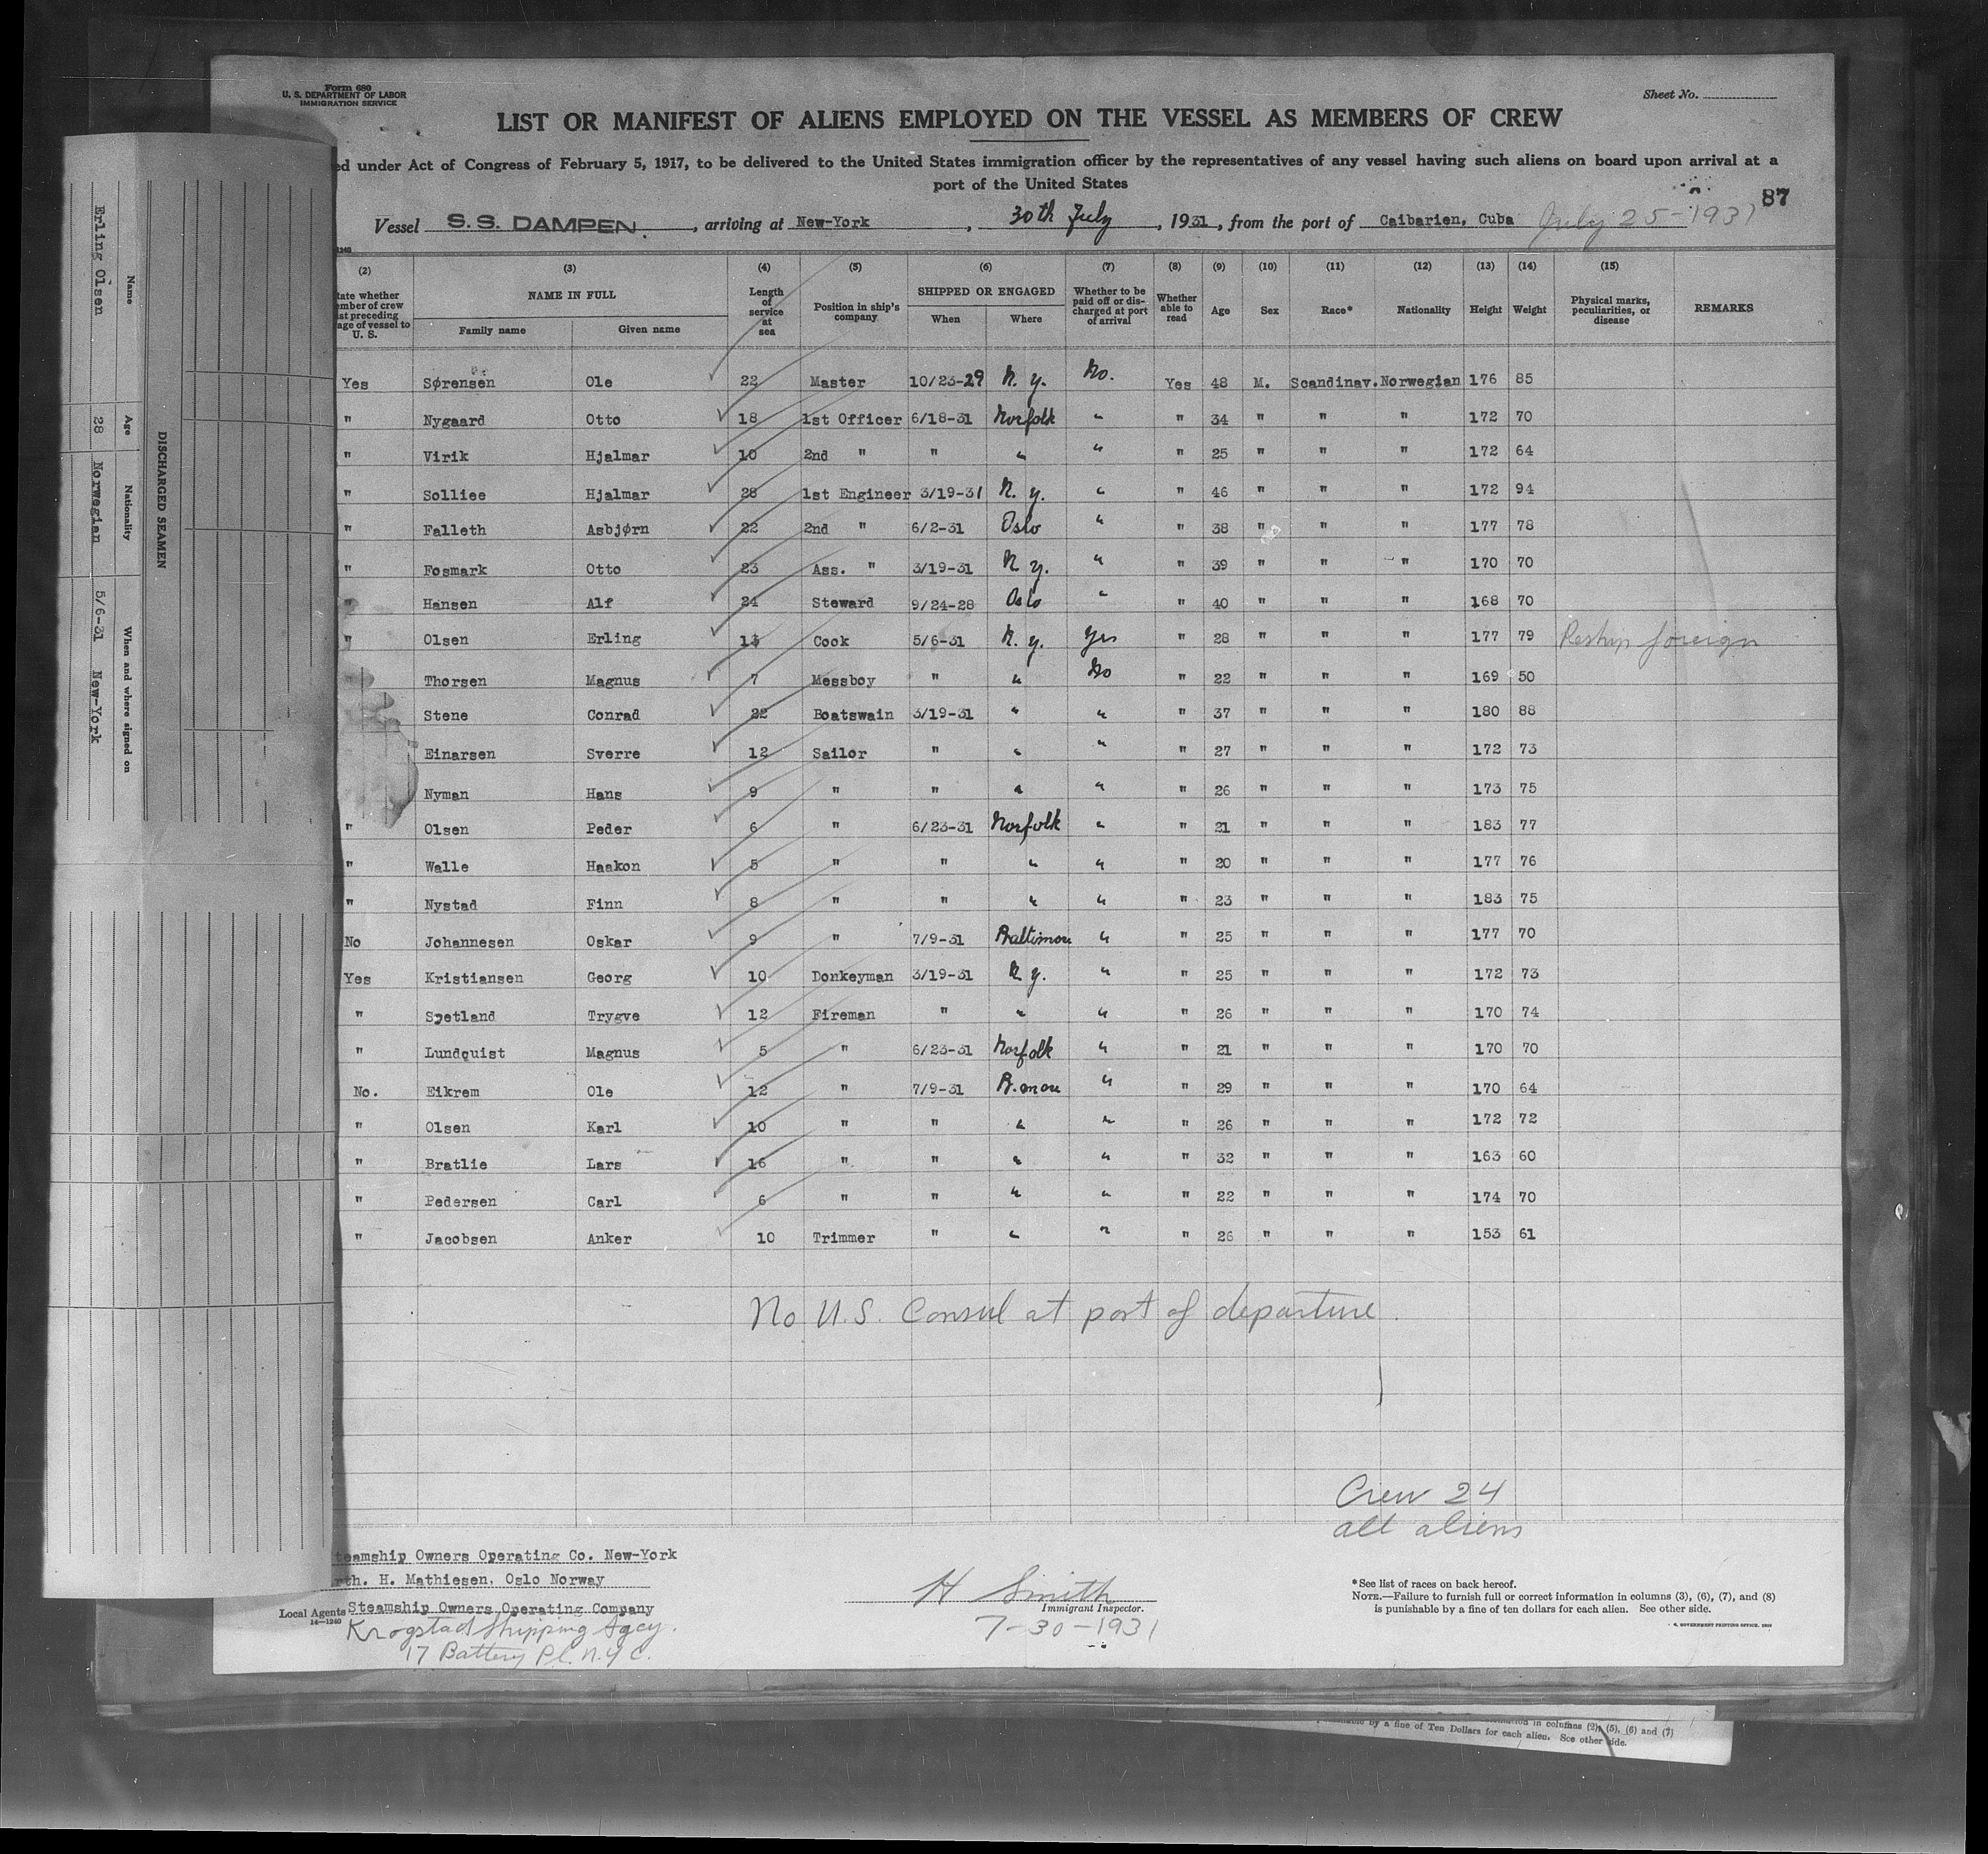 Form 680
U. S. DEPARTMENT OF LABOR
IMMIGRATION SERVICE
Sheet No.
LIST OR MANIFEST OF ALIENS EMPLOYED ON THE VESSEL AS MEMBERS OF CREW
ed under Act of Congress of February 5, 1917, to be delivered to the United States immigration officer by the representatives of any vessel having such aliens on board upon arrival at a
port of the United States
87
Vessel S.S. DAMPEN. , arriving at New-York , 30th July , 1931, from the port of Caibarien, Cuba July 25-1931
(2) (3) (4) (5) (6) (7) (8) (9) (10) (11) (12) (13) (14) (15)
tate whether mber of crew st preceding age of vessel to U. S. NAME IN FULL Family name Given name Length of service at sea Position in ship's company SHIPPED OR ENGAGED When Where Whether to be paid off or discharged at port of arrival Whether able to read Age Sex Race* Nationality Height Weight Physical marks, peculiarities, or disease REMARKS
Yes Sørensen Ole 22 Master 10/23-29 N. y. No. Yes 48 M. Scandinav. Norwegian 176 85
" Nygaard Otto 18 1st Officer 6/18-31 Norfolk " " 34 " " " 172 70
" Virik Hjalmar 10 2nd " " " " " 25 " " " 172 64
" Solliee Hjalmar 28 1st Engineer 3/19-31 N. y. " " 46 " " " 172 94
" Falleth Asbjørn 22 2nd " 6/2-31 Oslo " " 38 " " " 177 78
" Fosmark Otto 23 Ass. " 3/19-31 N. y. " " 39 " " " 170 70
" Hansen Alf 24 Steward 9/24-28 Oslo " " 40 " " " 168 70
" Olsen Erling Cook 5/6-31 N. y. Yes " 28 " " " 177 79 Reship foreign
Thorsen Magnus 7 Messboy " " No " 22 " " " 169 50
Stene Conrad 22 Boatswain 3/19-31 " " " 37 " " " 180 88
Einarsen Sverre 12 Sailor " " " " 27 " " " 172 73
Nyman Hans 9 " " " " " 26 " " " 173 75
" Olsen Peder 6 " 6/23-31 Norfolk " " 21 " " " 183 77
" Walle Haakon 5 " " " " " 20 " " " 177 76
" Nystad Finn 8 " " " " " 23 " " " 183 75
No Johannesen Oskar 9 " 7/9-31 Baltimore " " 25 " " " 177 70
Yes Kristiansen Georg 10 Donkeyman 3/19-31 N. y. " " 25 " " " 172 73
" Spetland Trygve 12 Fireman " " " " 26 " " " 170 74
" Lundquist Magnus 5 " 6/23-31 Norfolk " " 21 " " " 170 70
No. Eikrem Ole 12 " 7/9-31 B.more " " 29 " " " 170 64
" Olsen Karl 10 " " " " " 26 " " " 172 72
" Bratlie Lars 16 " " " " " 32 " " " 163 60
" Pedersen Carl 6 " " " " " 22 " " " 174 70
" Jacobsen Anker 10 Trimmer " " " " 26 " " " 153 61
No U.S. Consul at port of departure.
Crew 24
all aliens
teamship Owners Operating Co. New-York
rth. H. Mathiesen, Oslo Norway
Local Agents Steamship Owners Operating Company
14-1240
Krogstad Shipping Agcy.
17 Battery Pl. N.Y.C.
H Smith
Immigrant Inspector.
7-30-1931
*See list of races on back hereof.
NOTE.—Failure to furnish full or correct information in columns (3), (6), (7), and (8)
is punishable by a fine of ten dollars for each alien. See other side.
GOVERNMENT PRINTING OFFICE
DISCHARGED SEAMEN
Name Age Nationality When and where signed on
Erling Olsen 28 Norwegian 5/6-31 New-York
in columns (2), (5), (6) and (7)
by a fine of Ten Dollars for each alien. See other side.